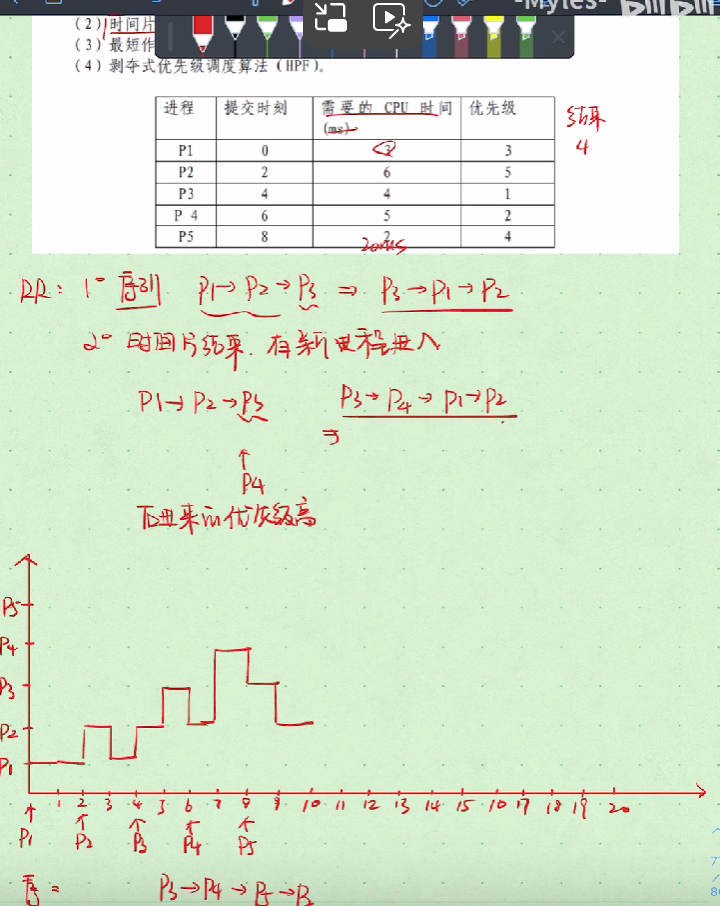 -Myles-
bilibili
(2) 时间片
(3) 最短作
(4) 剥夺式优先级调度算法(HPF)。
进程 提交时刻 需要的 CPU 时间 (ms) 优先级
结束
P1 0 3 3
4
P2 2 6 5
P3 4 4 1
P 4 6 5 2
P5 8 2 4
20ms
RR: 1° 序列 P1→P2→P3 ⇒ P3→P1→P2
2° 时间片结束. 有新进程进入
P1→P2→P3 P3→P4→P1→P2
⇒
↑
P4
进来的优先级高
P5
P4
P3
P2
P1
1 2 3 4 5 6 7 8 9 10 11 12 13 14 15 16 17 18 19 20
↑ ↑ ↑ ↑ ↑
P1 P2 P3 P4 P5
序= P3→P4→P5→P2